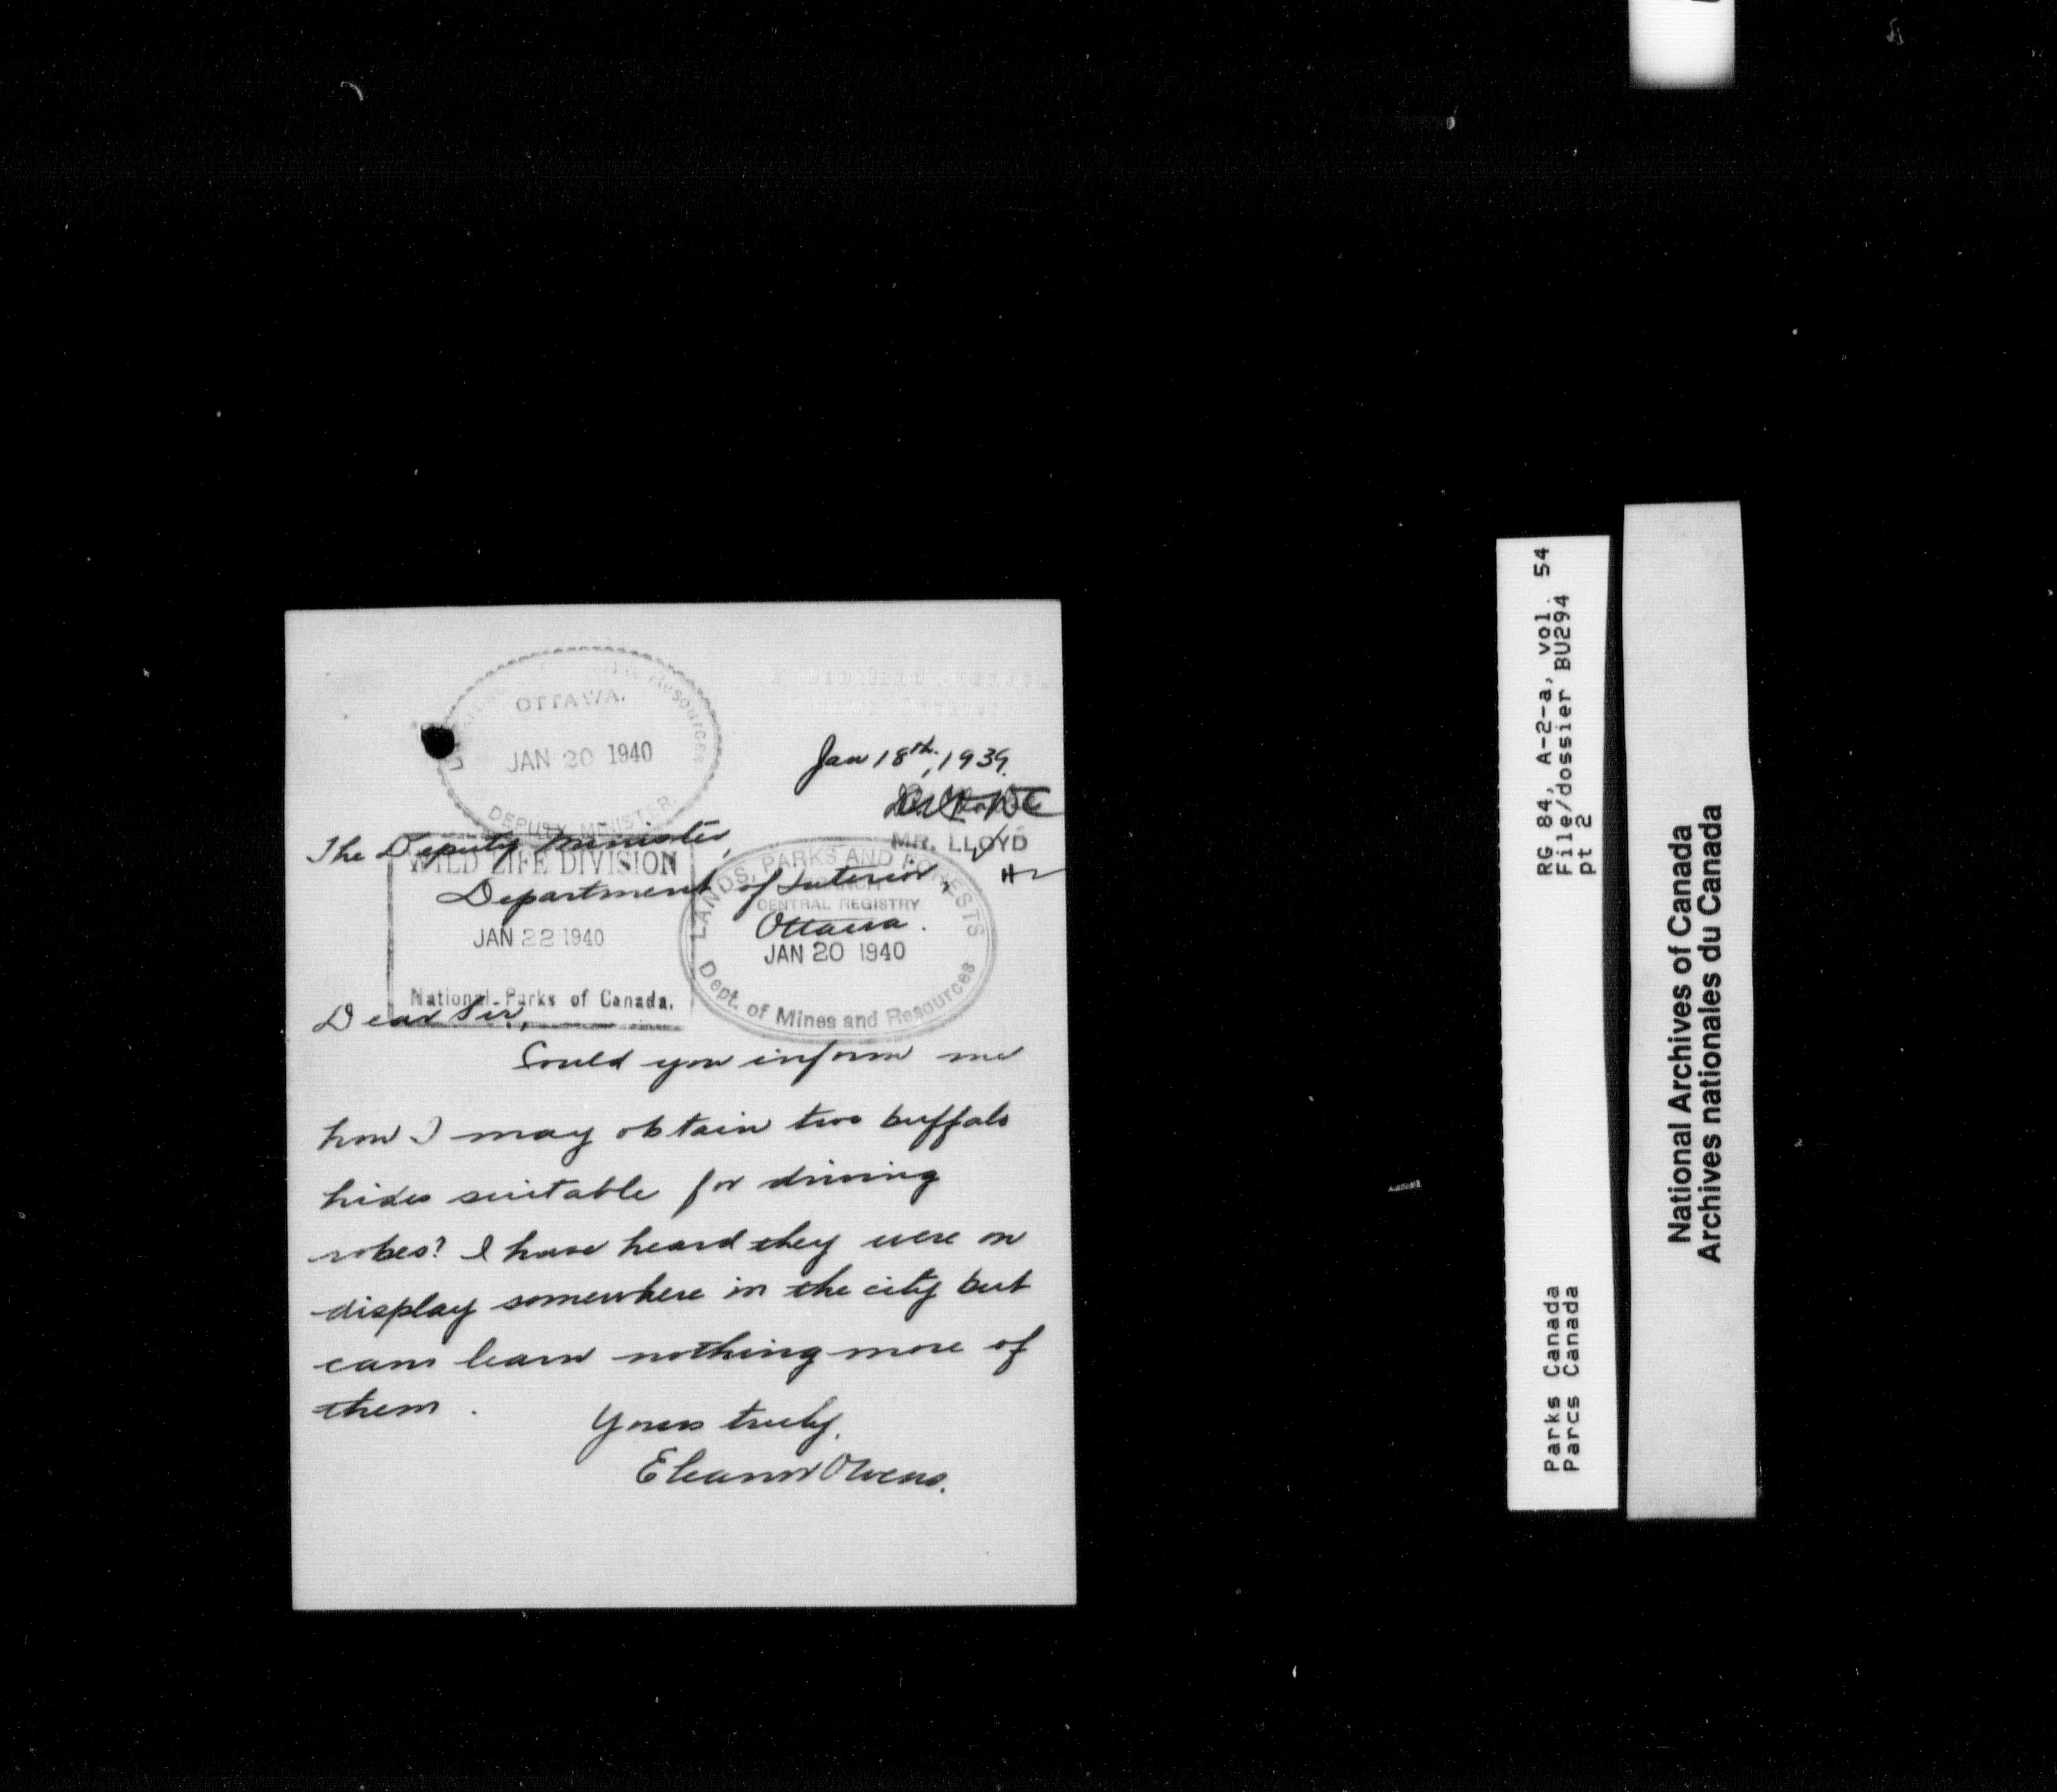 OTTAWA.
Resources
JAN 20 1940
DEPUTY MINISTER.
Jan 18th, 1939.
MR. LLOYD
The Deputy Minister,
WILD LIFE DIVISION
Department of Interior,
LANDS, PARKS AND FORESTS
BRANCH
CENTRAL REGISTRY
Ottawa.
JAN 22 1940
JAN 20 1940
National Parks of Canada.
Dept. of Mines and Resources
Dear Sir,
Could you inform me
how I may obtain two buffalo
hides suitable for driving
robes? I have heard they were on
display somewhere in the city but
can learn nothing more of
them.
Yours truly,
Eleanor Owens.
RG 84, A-2-a, vol. 54
File/dossier BU294
pt 2
Parks Canada
Parcs Canada
National Archives of Canada
Archives nationales du Canada